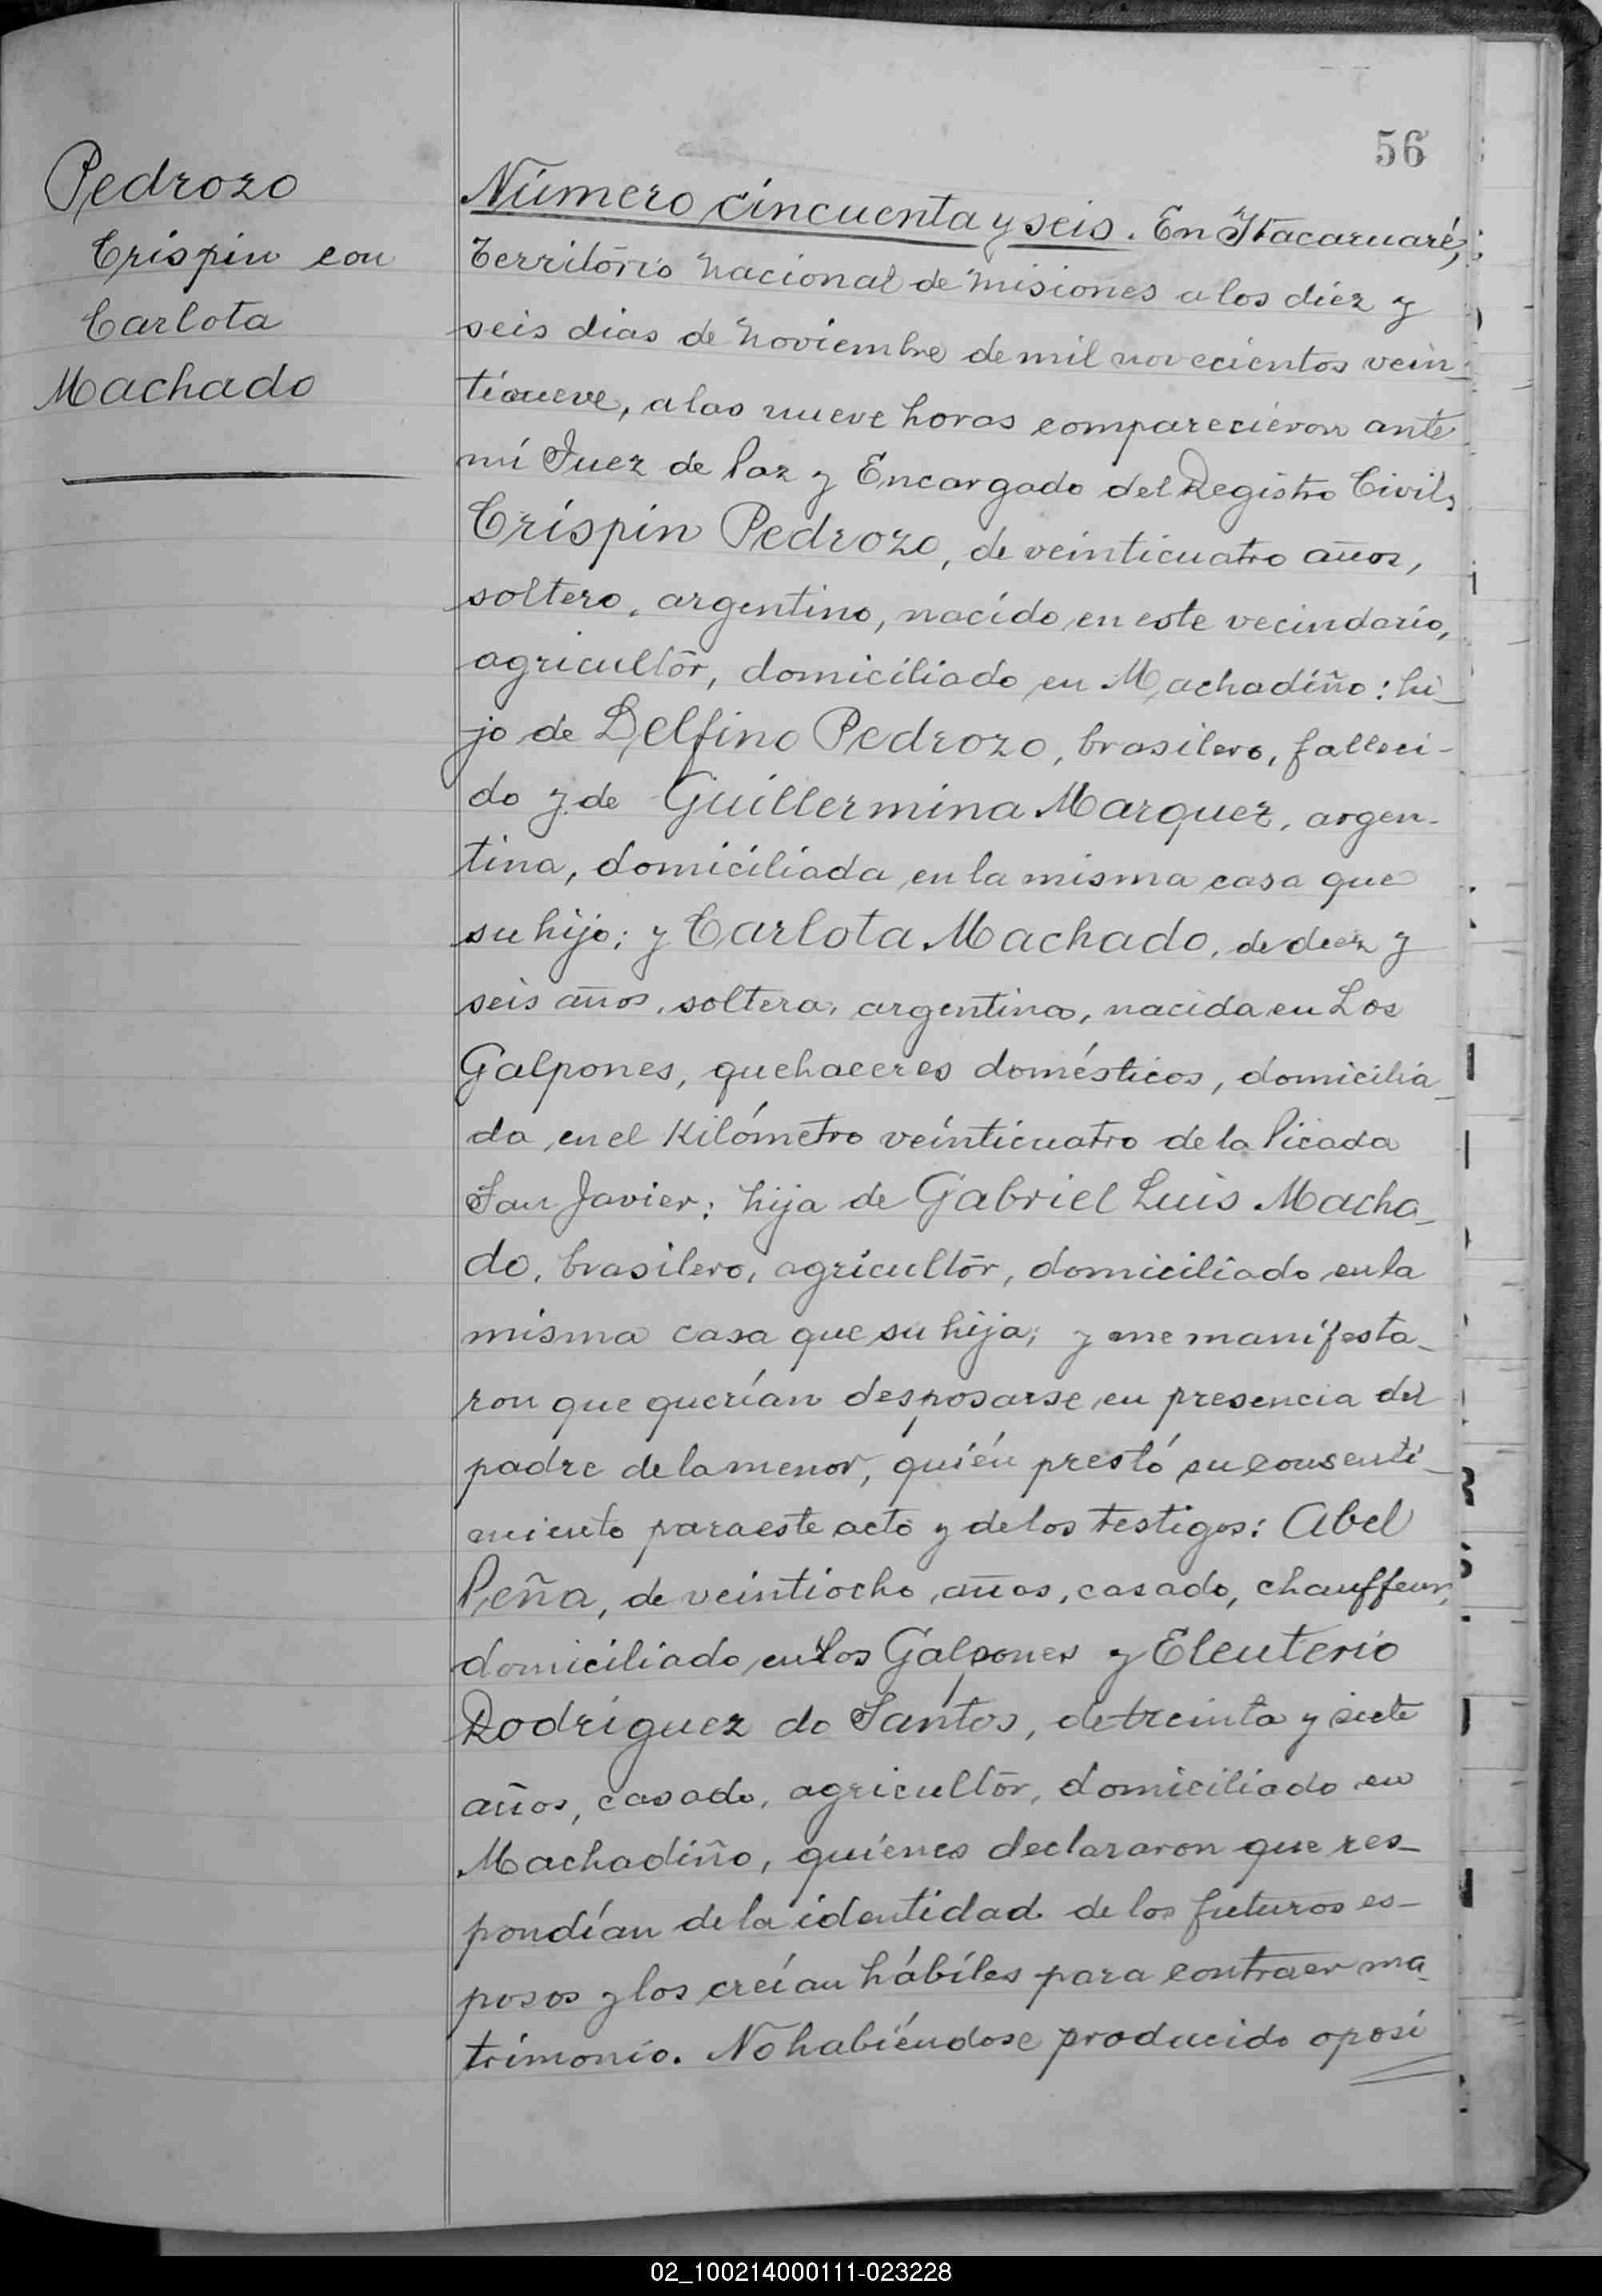 56
Pedrozo
Crispin con
Carlota
Machado
Número cincuenta y seis. En Itacaruaré,
Territorio Nacional de Misiones a los diez y
seis dias de Noviembre de mil novecientos vein-
tinueve, a las nueve horas comparecieron ante
mí Juez de Paz y Encargado del Registro Civil,
Crispin Pedrozo, de veinticuatro años,
soltero, argentino, nacido en este vecindario,
agricultor, domiciliado en Machadiño: hi-
jo de Delfino Pedrozo, brasilero, falleci-
do y de Guillermina Marquez, argen-
tina, domiciliada en la misma casa que
su hijo; y Carlota Machado, de diez y
seis años, soltera, argentina, nacida en Los
Galpones, quehaceres domésticos, domicilia-
da en el Kilómetro veinticuatro de la Picada
San Javier: hija de Gabriel Luis Macha-
do, brasilero, agricultor, domiciliado en la
misma casa que su hija; y me manifesta-
ron que querían desposarse en presencia del
padre de la menor, quién prestó su consenti-
miento para este acto y de los testigos: Abel
Peña, de veintiocho años, casado, chauffeur,
domiciliado en Los Galpones y Eleuterio
Rodriguez do Santos, de treinta y siete
años, casado, agricultor, domiciliado en
Machadiño, quiénes declararon que res-
pondían de la identidad de los futuros es-
posos y los creían hábiles para contraer ma-
trimonio. No habiéndose producido oposi
02_100214000111-023228